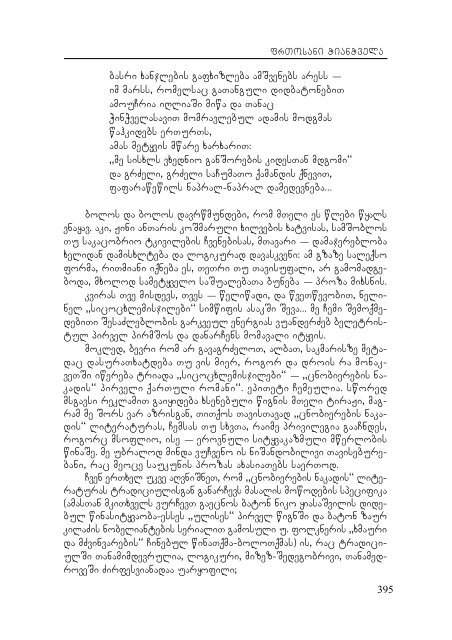 ფრთოსანი ჭიანჭველა
ბასრი ხანჯლების გაფხიზლება ამშვენებს არესს —
იმ მარსს, რომელსაც გათანგული დიდბატონებით
ამოუჩრია იღლიაში მიწა და თანაც
ჭინჭველასავით მომრავლებულ ადამის მოდგმას
წაჰკიდებს ერთურთს,
ამას მეტყვის მწარე ხარხარით:
„მე სისხლს ვხედნიო განშორების კიდესთან მდგომი“
და გრძელი, გრძელი საჩუმათო ქამანდის ქნევით,
ფაფარაწეწილს ნაპრალ-ნაპრალ დამედევნება...
ბოლოს და ბოლოს დავრწმუნდები, რომ მთელი ეს წლები წყალს
ვნაყავ. აკი, ჟინი ანთარის კოშმარული ხილვების ხატვისას, სამშობლოს
თუ საკაცობრიო ტკივილების ჩვენებისას, მთავარი — დამაჯერებლობა
ხელიდან დამისხლტება და ლოგიკურად დავასკვენი: ამ გზაზე სალექსო
ფორმა, რითმიანი იქნება ეს, თეთრი თუ თავისუფალი, არ გამომადგე-
ბოდა, მხოლოდ სამეტყველო საშუალებათა ბუნება — პროზა მიხსნის.
კვირას თვე მისდევს, თვეს — წელიწადი, და წვეთწვეობით, ნელი-
ნელ „სიცოცხლემისჯილები“ სიმწიფის ასაკში შევა... მე ჩემი შემოქმე-
დებითი შესაძლებლობის გარკვეულ ენერგიას ვუანდერძებ ბელეტრის-
ტულ პირველ პირმშოს და დანარჩენს მომავალი იტყვის.
მოკლედ, ბევრი რომ არ გავაგრძელოთ, ალბათ, საკმარისზე მეტა-
დაც დასურათხატდება თუ ვის მიერ, როგორ და დროის რა მონაკ-
ვეთში იწერება ტრიადა „სიცოცხლემისჯილები“ — „ცნობიერების ნა-
კადის“ პირველი ქართული რომანი“. ეპითეტი ჩემეულია. სწორედ
მსგავსი რეკლამით გაიყიდება ხსენებული წიგნის მთელი ტირაჟი, მაგ-
რამ მე შორს ვარ აზრისგან, თითქოს თავისთავად „ცნობიერების ნაკა-
დის“ ლიტერატურას, ჩემსას თუ სხვთა, რაიმე პრივილეგია გააჩნდეს,
როგორც მსოფლიო, ისე — ეროვნული სიტყვაკაზმული მწერლობის
წინაშე. მე უბრალოდ მინდა ვუჩვენო ის ნიშანდობილივი თავისებურე-
ბანი, რაც მეოცე საუკუნის პროზას ახასიათებს საერთოდ.
ჩვენ ერთხელ უკვე აღვნიშნეთ, რომ „ცნობიერების ნაკადის“ ლიტე-
რატურას ტრადიციულისგან განარჩევს მასალის მოწოდების სპეციფიკა
(ამასთან მკითხველს ვურჩევთ გაეცნოს ბატონ ნიკო ყიასაშვილის დიდე-
ბულ წინასიტყვაობა-ესსეს „ულისეს“ პირველ წიგნში და ბატონ ზაურ
კილაძის ნობელიანტების სერიალით გამოსული უ. ფოლკნერის „ხმაური
და მძვინვარების“ ჩინებულ წინათქმა-ბოლოთქმას) ის, რაც ტრადიცი-
ულში თანამიმდევრულია, ლოგიკური, მიზეზ-შედეგობრივი, თანამედ-
როვეში ძირფესვიანადაა უარყოფილი;
395